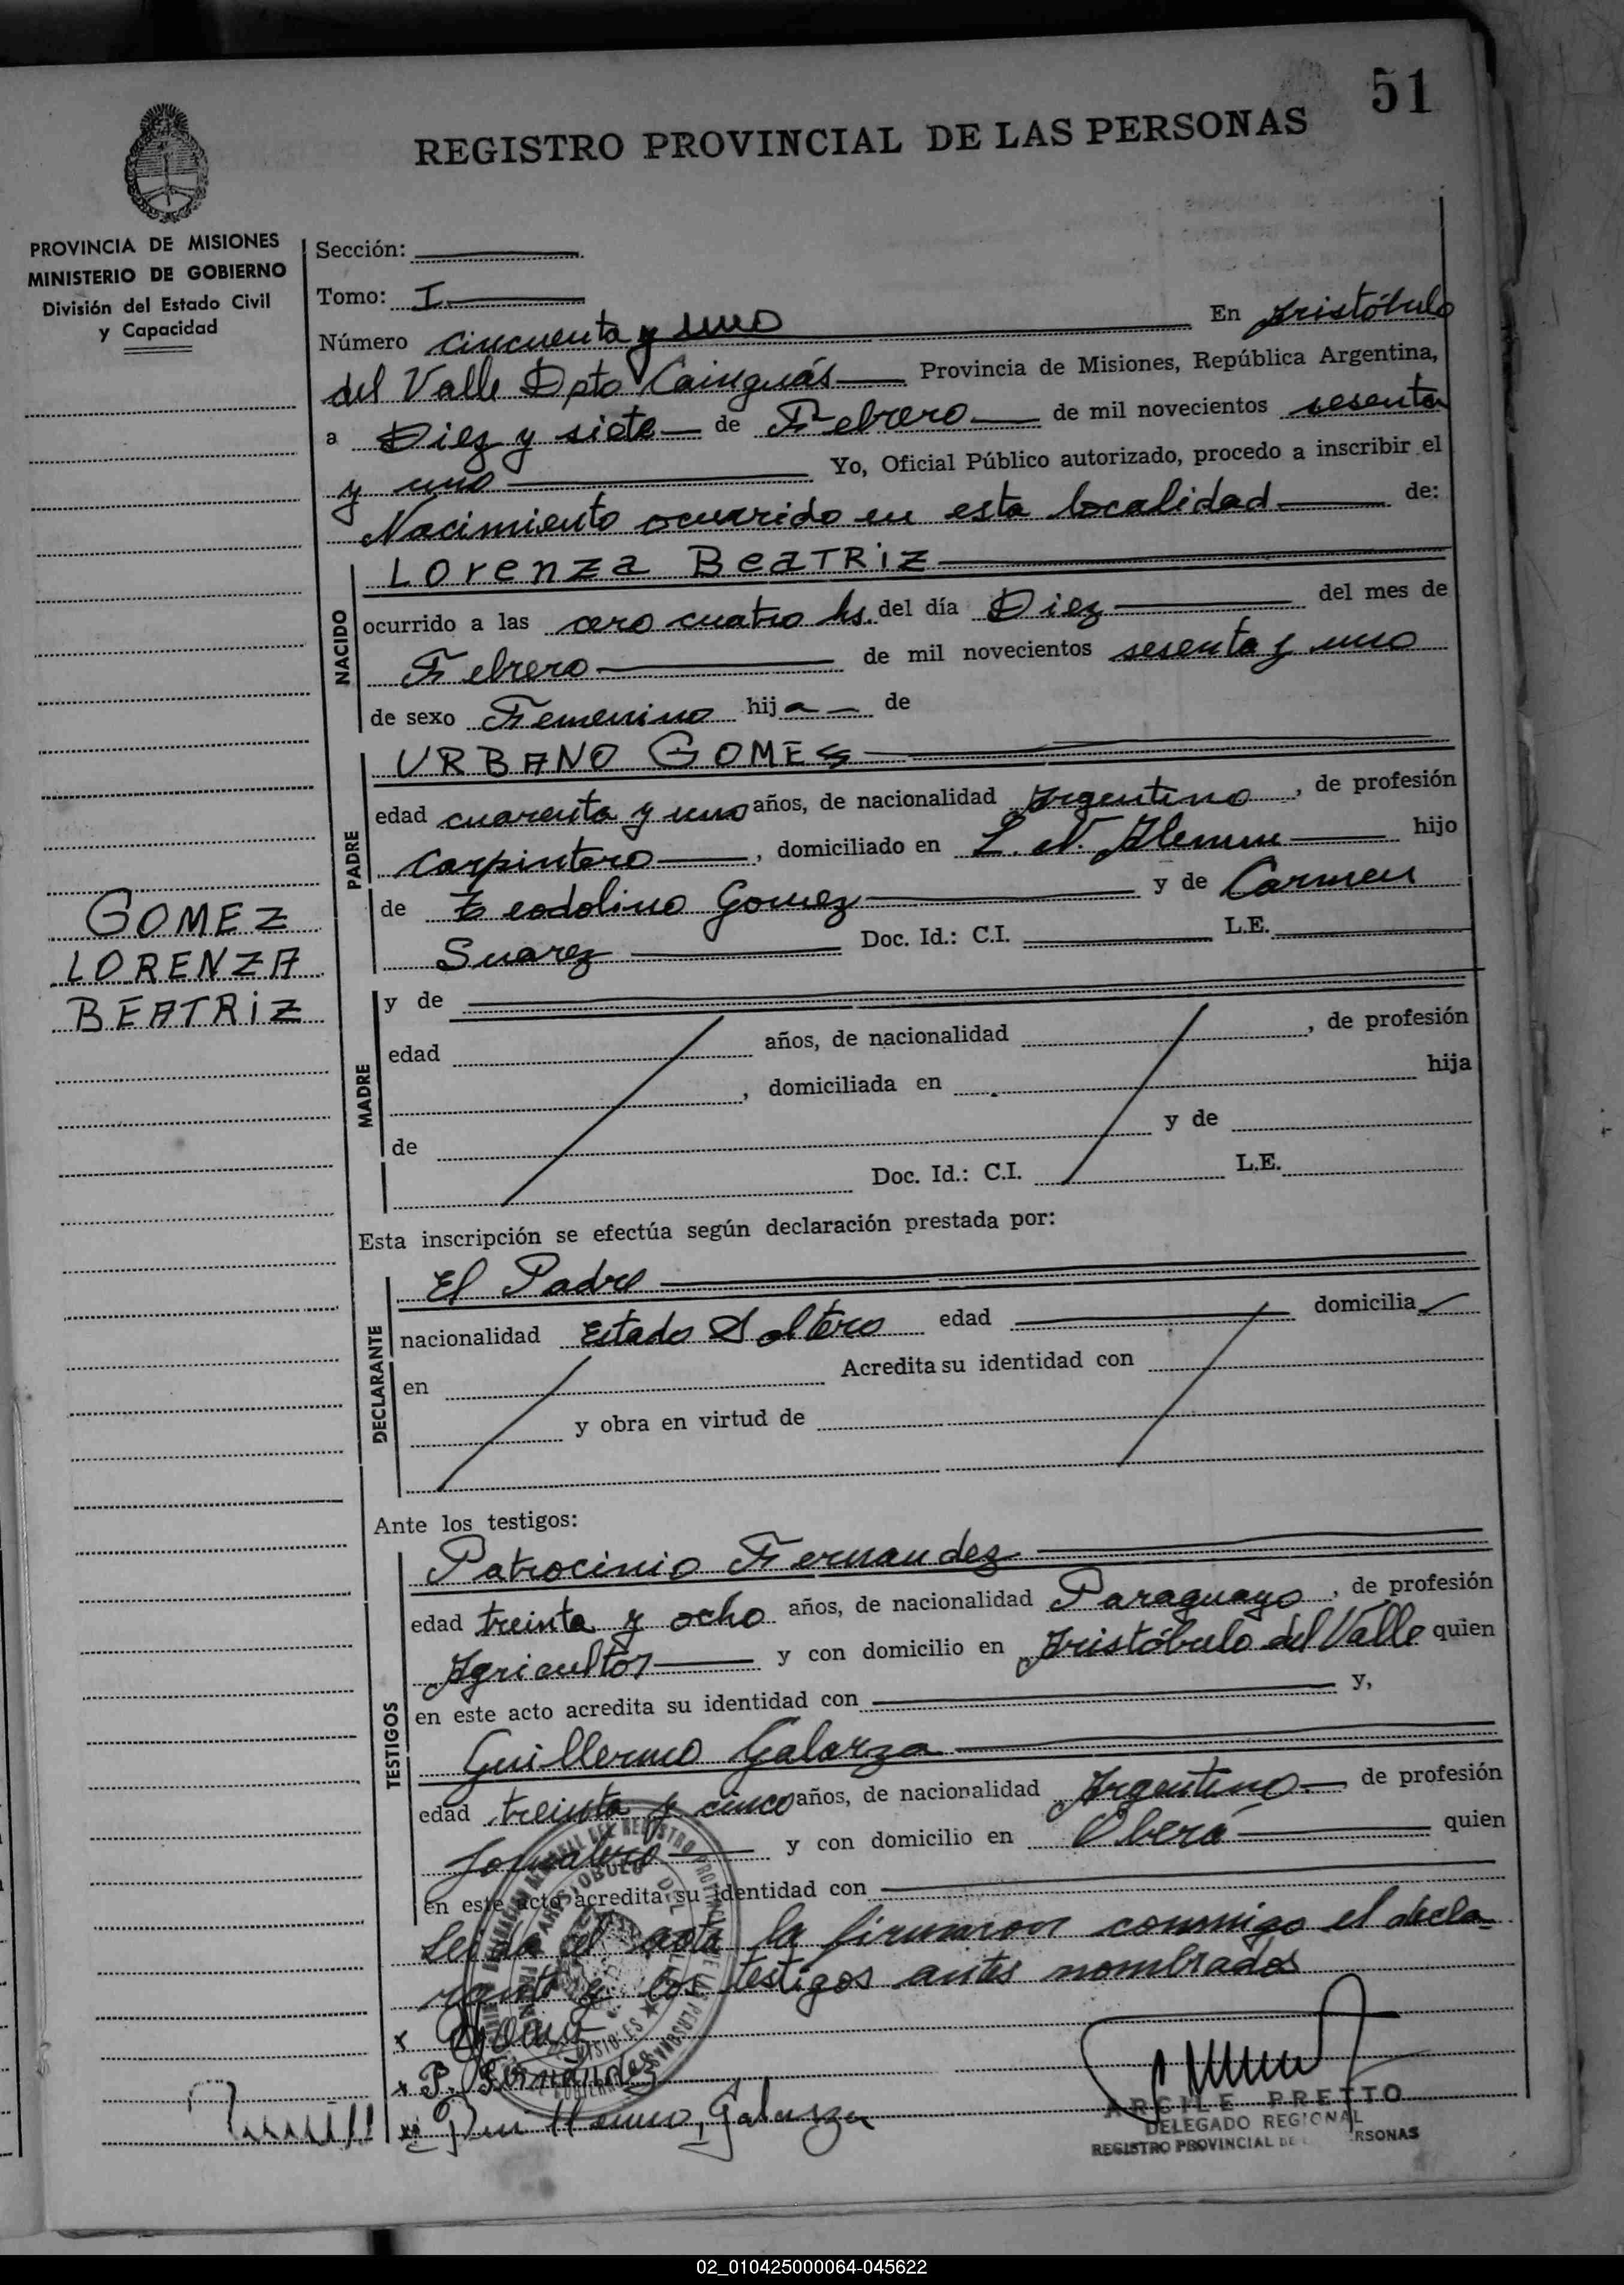 51
REGISTRO PROVINCIAL DE LAS PERSONAS
PROVINCIA DE MISIONES
MINISTERIO DE GOBIERNO
División del Estado Civil
y Capacidad
Sección:
Tomo: I
Número cincuenta y uno En Aristóbulo
del Valle Dpto Cainguás Provincia de Misiones, República Argentina,
a Diez y siete de Febrero de mil novecientos sesenta
y uno Yo, Oficial Público autorizado, procedo a inscribir el
Nacimiento ocurrido en esta localidad de:
NACIDO
Lorenza Beatriz
ocurrido a las cero cuatro hs. del día Diez del mes de
Febrero de mil novecientos sesenta y uno
de sexo Femenino hija de
PADRE
URBANO GOMES
edad cuarenta y uno años, de nacionalidad Argentino, de profesión
Carpintero, domiciliado en L. N. Alemm hijo
de Teodolino Gomez y de Carmen
Suarez Doc. Id.: C.I. L.E.
GOMEZ
LORENZA
BEATRIZ
MADRE
y de
edad años, de nacionalidad , de profesión
, domiciliada en hija
de y de
Doc. Id.: C.I. L.E.
Esta inscripción se efectúa según declaración prestada por:
DECLARANTE
El Padre
nacionalidad Estado Soltero edad domicilia
en Acredita su identidad con
y obra en virtud de
Ante los testigos:
TESTIGOS
Patrocinio Fernandez
edad treinta y ocho años, de nacionalidad Paraguayo, de profesión
Agricultor y con domicilio en Aristóbulo del Valle quien
en este acto acredita su identidad con y,
Guillermo Galarza
edad treinta y cinco años, de nacionalidad Argentino. de profesión
Jornalero y con domicilio en Oberá quien
en este acto acredita su identidad con
Leida el acta la firmaron conmigo el decla-
rante y los testigos antes nombrados
P. Fernandez
Guillermo, Galarza
ARGILE PRETTO
DELEGADO REGIONAL
REGISTRO PROVINCIAL DE RSONAS
02_010425000064-045622